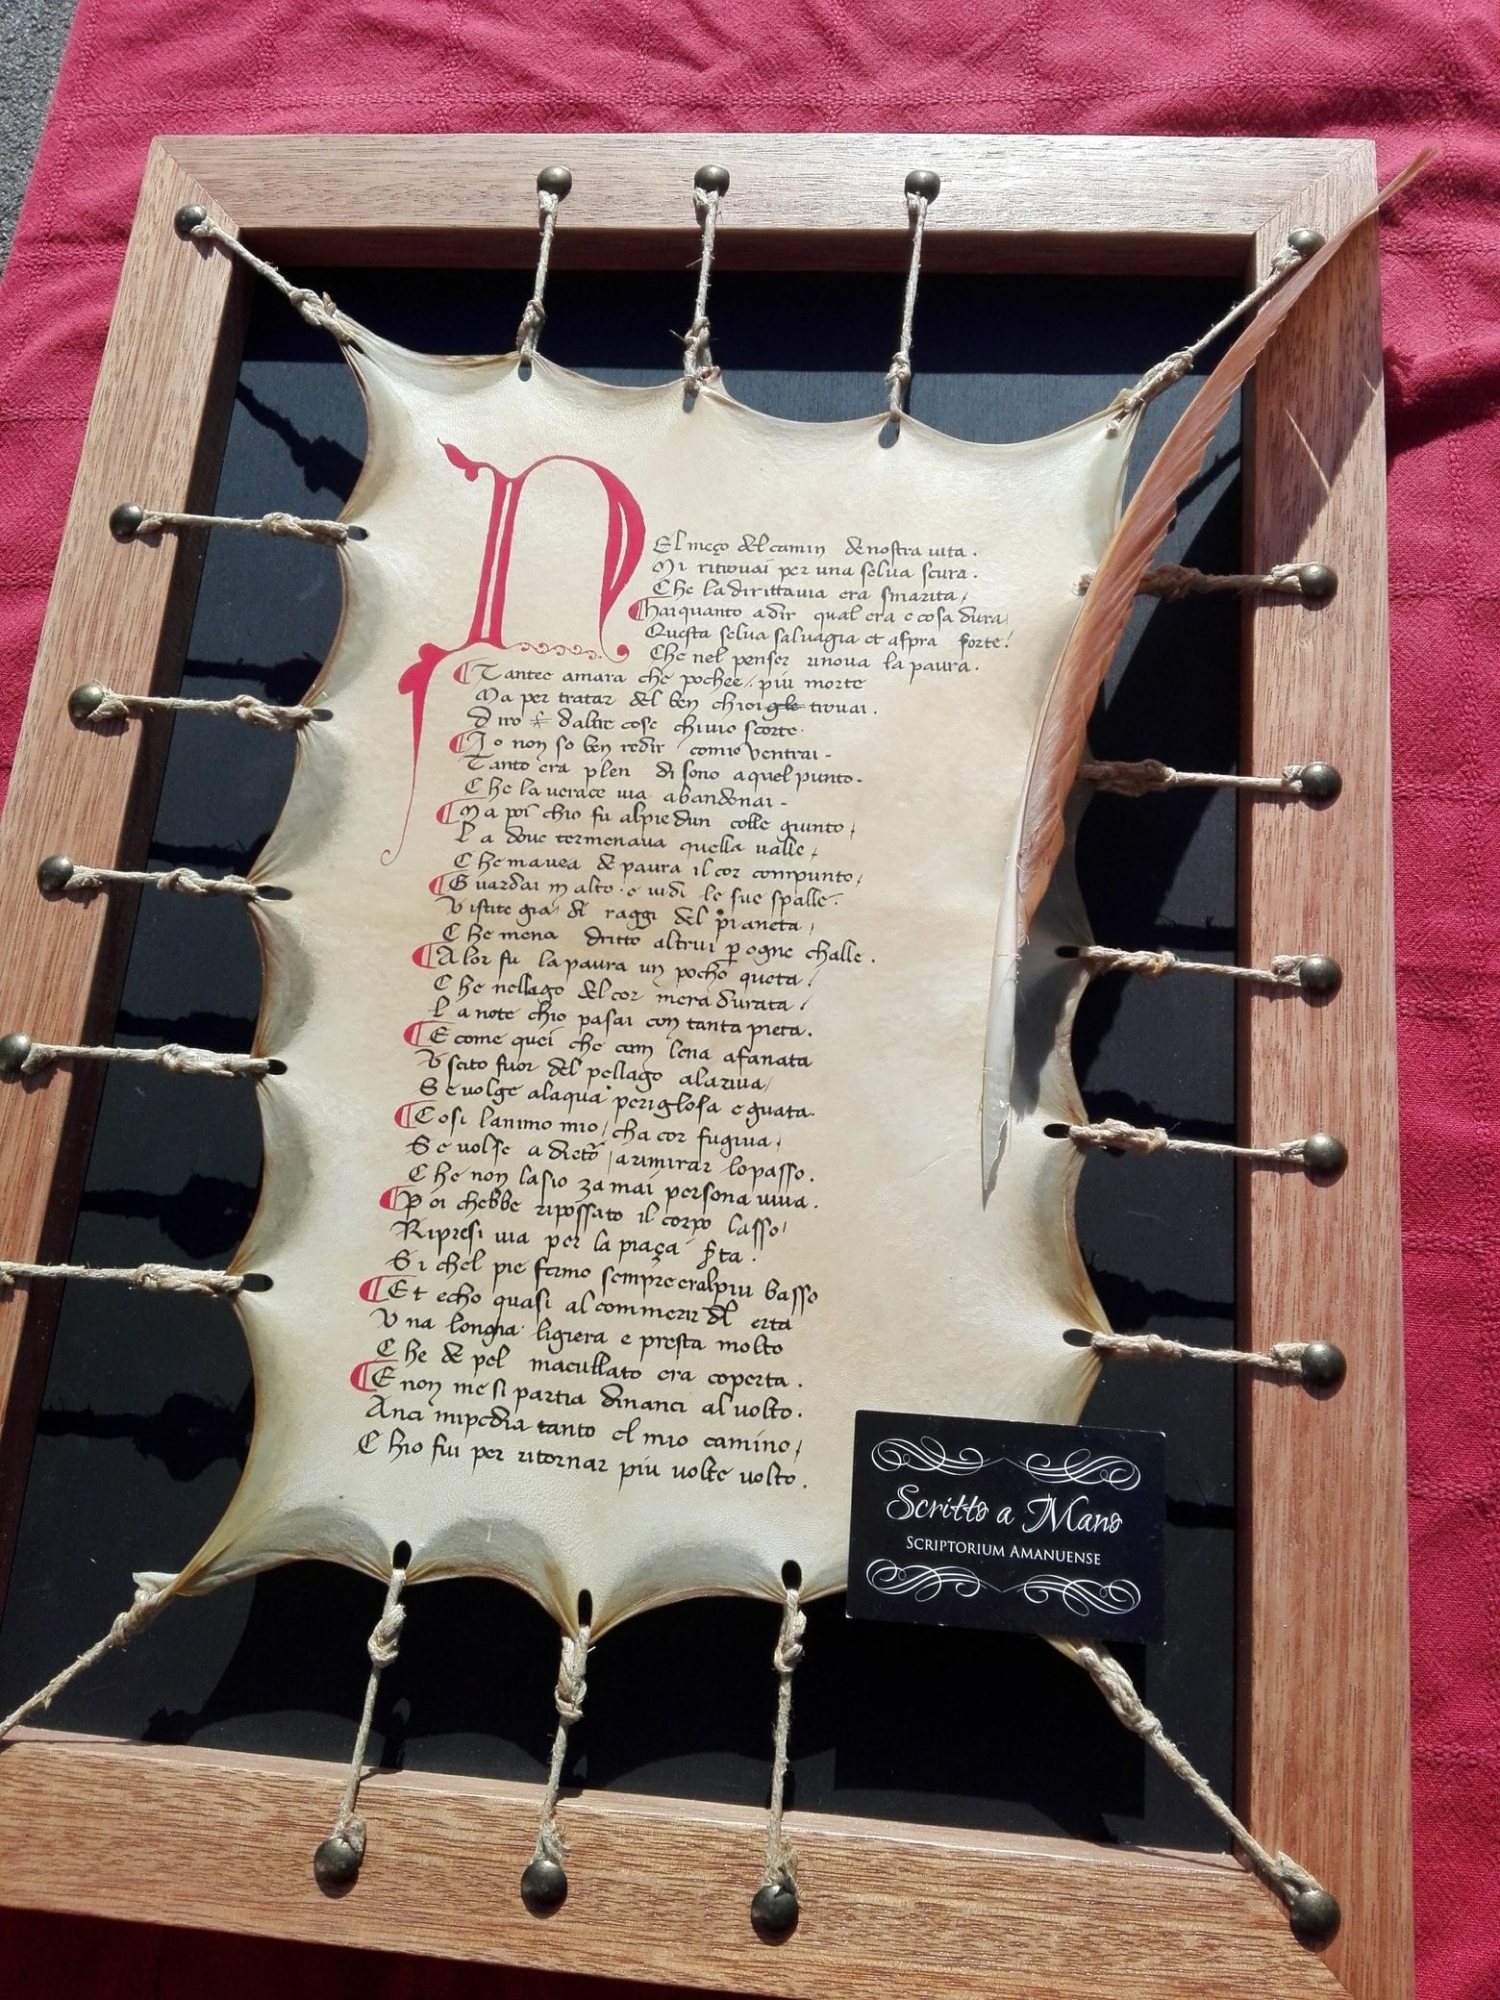 N
El meço del camin de nostra uita.
Mi ritrouai per una selua scura.
Che la dirittauia era smarita/
Hai quanto a dir qual era e cosa dura/
Questa selua saluagia et aspra forte!
Che nel penser rinoua la paura.
Tantee amara che pochee/ piu morte
Ma per tratar del ben chioi trouai.
Diro daltre cose chiuio scorte.
Io non so ben redir comio ventrai-
Tanto era plen di sono aquel punto.
Che la uerace uia abandonai-
Ma poi chio fu alpiedun colle giunto/
La doue termenaua quella ualle/
Che mauea de paura il cor compunto/
Guardai in alto. e uidi le sue spalle.
Vistite gia di raggi del pianeta/
Che mena dritto altrui p ogne challe.
Alor fu la paura un pocho queta/
Che nellago del cor mera durata/
La note chio pasai con tanta pieta.
E come quei che cum lena afanata
Vscito fuor del pellago alariua/
Se volge alaqua perigłosa e guata.
Cosi lanimo mio/ cha cor fugiua/
Se uolse a dietro/ arimirar lo passo.
Che non lasio zamai persona uiua.
Poi chebbe ripossato il corpo lasso/
Ripresi uia per la piaça
Si chel pie fermo sempre eralpiu basso
Et echo quasi al commenzir del erta
Vna longia ligiera e presta molto
Che de pel macullato era coperta.
E non me si partia dinanci al uolto.
Anci inpedia tanto el mio camino/
Chio fui per ritornar piu uolte uolto.
Scritto a Mano
SCRIPTORIUM AMANUENSE